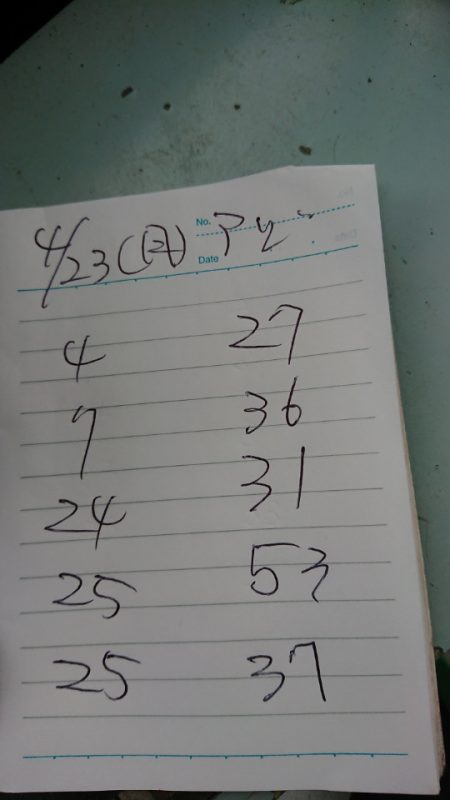 4/23(日)
No.
Date
4 27
7 36
24 31
25 53
25 37